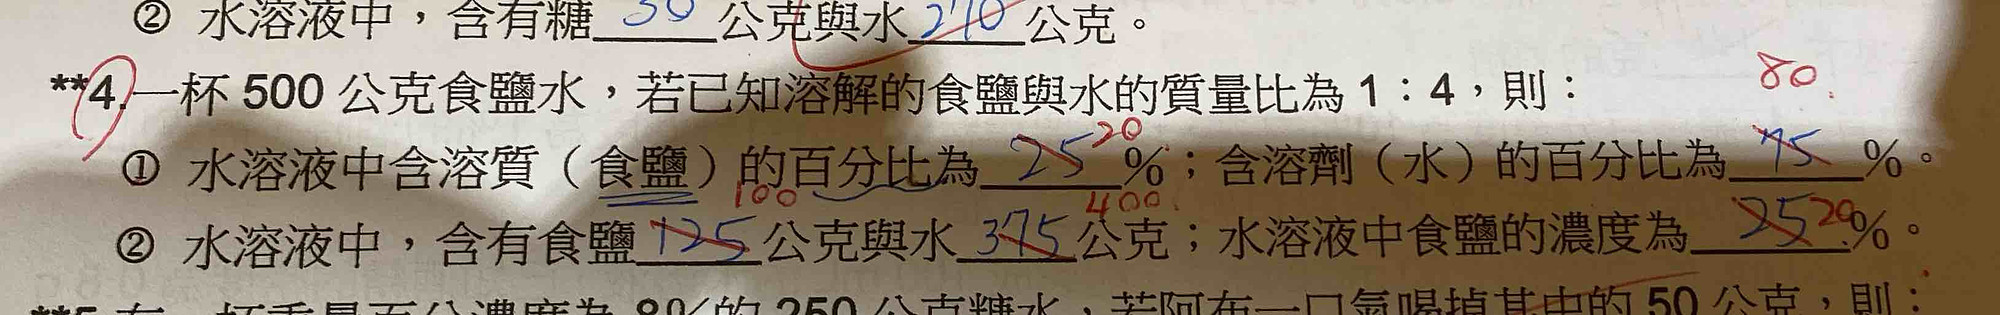 ② 水溶液中，含有糖 30 公克與水 270 公克。
80
**4.一杯 500 公克食鹽水，若已知溶解的食鹽與水的質量比為 1：4，則：
① 水溶液中含溶質（食鹽）的百分比為 25 20 %；含溶劑（水）的百分比為 75 %。
100 400
② 水溶液中，含有食鹽 125 公克與水 375 公克；水溶液中食鹽的濃度為 25 20 %。
**5.有一杯重量百分濃度為 8%的 250 公克糖水，若阿布一口氣喝掉其中的 50 公克，則：